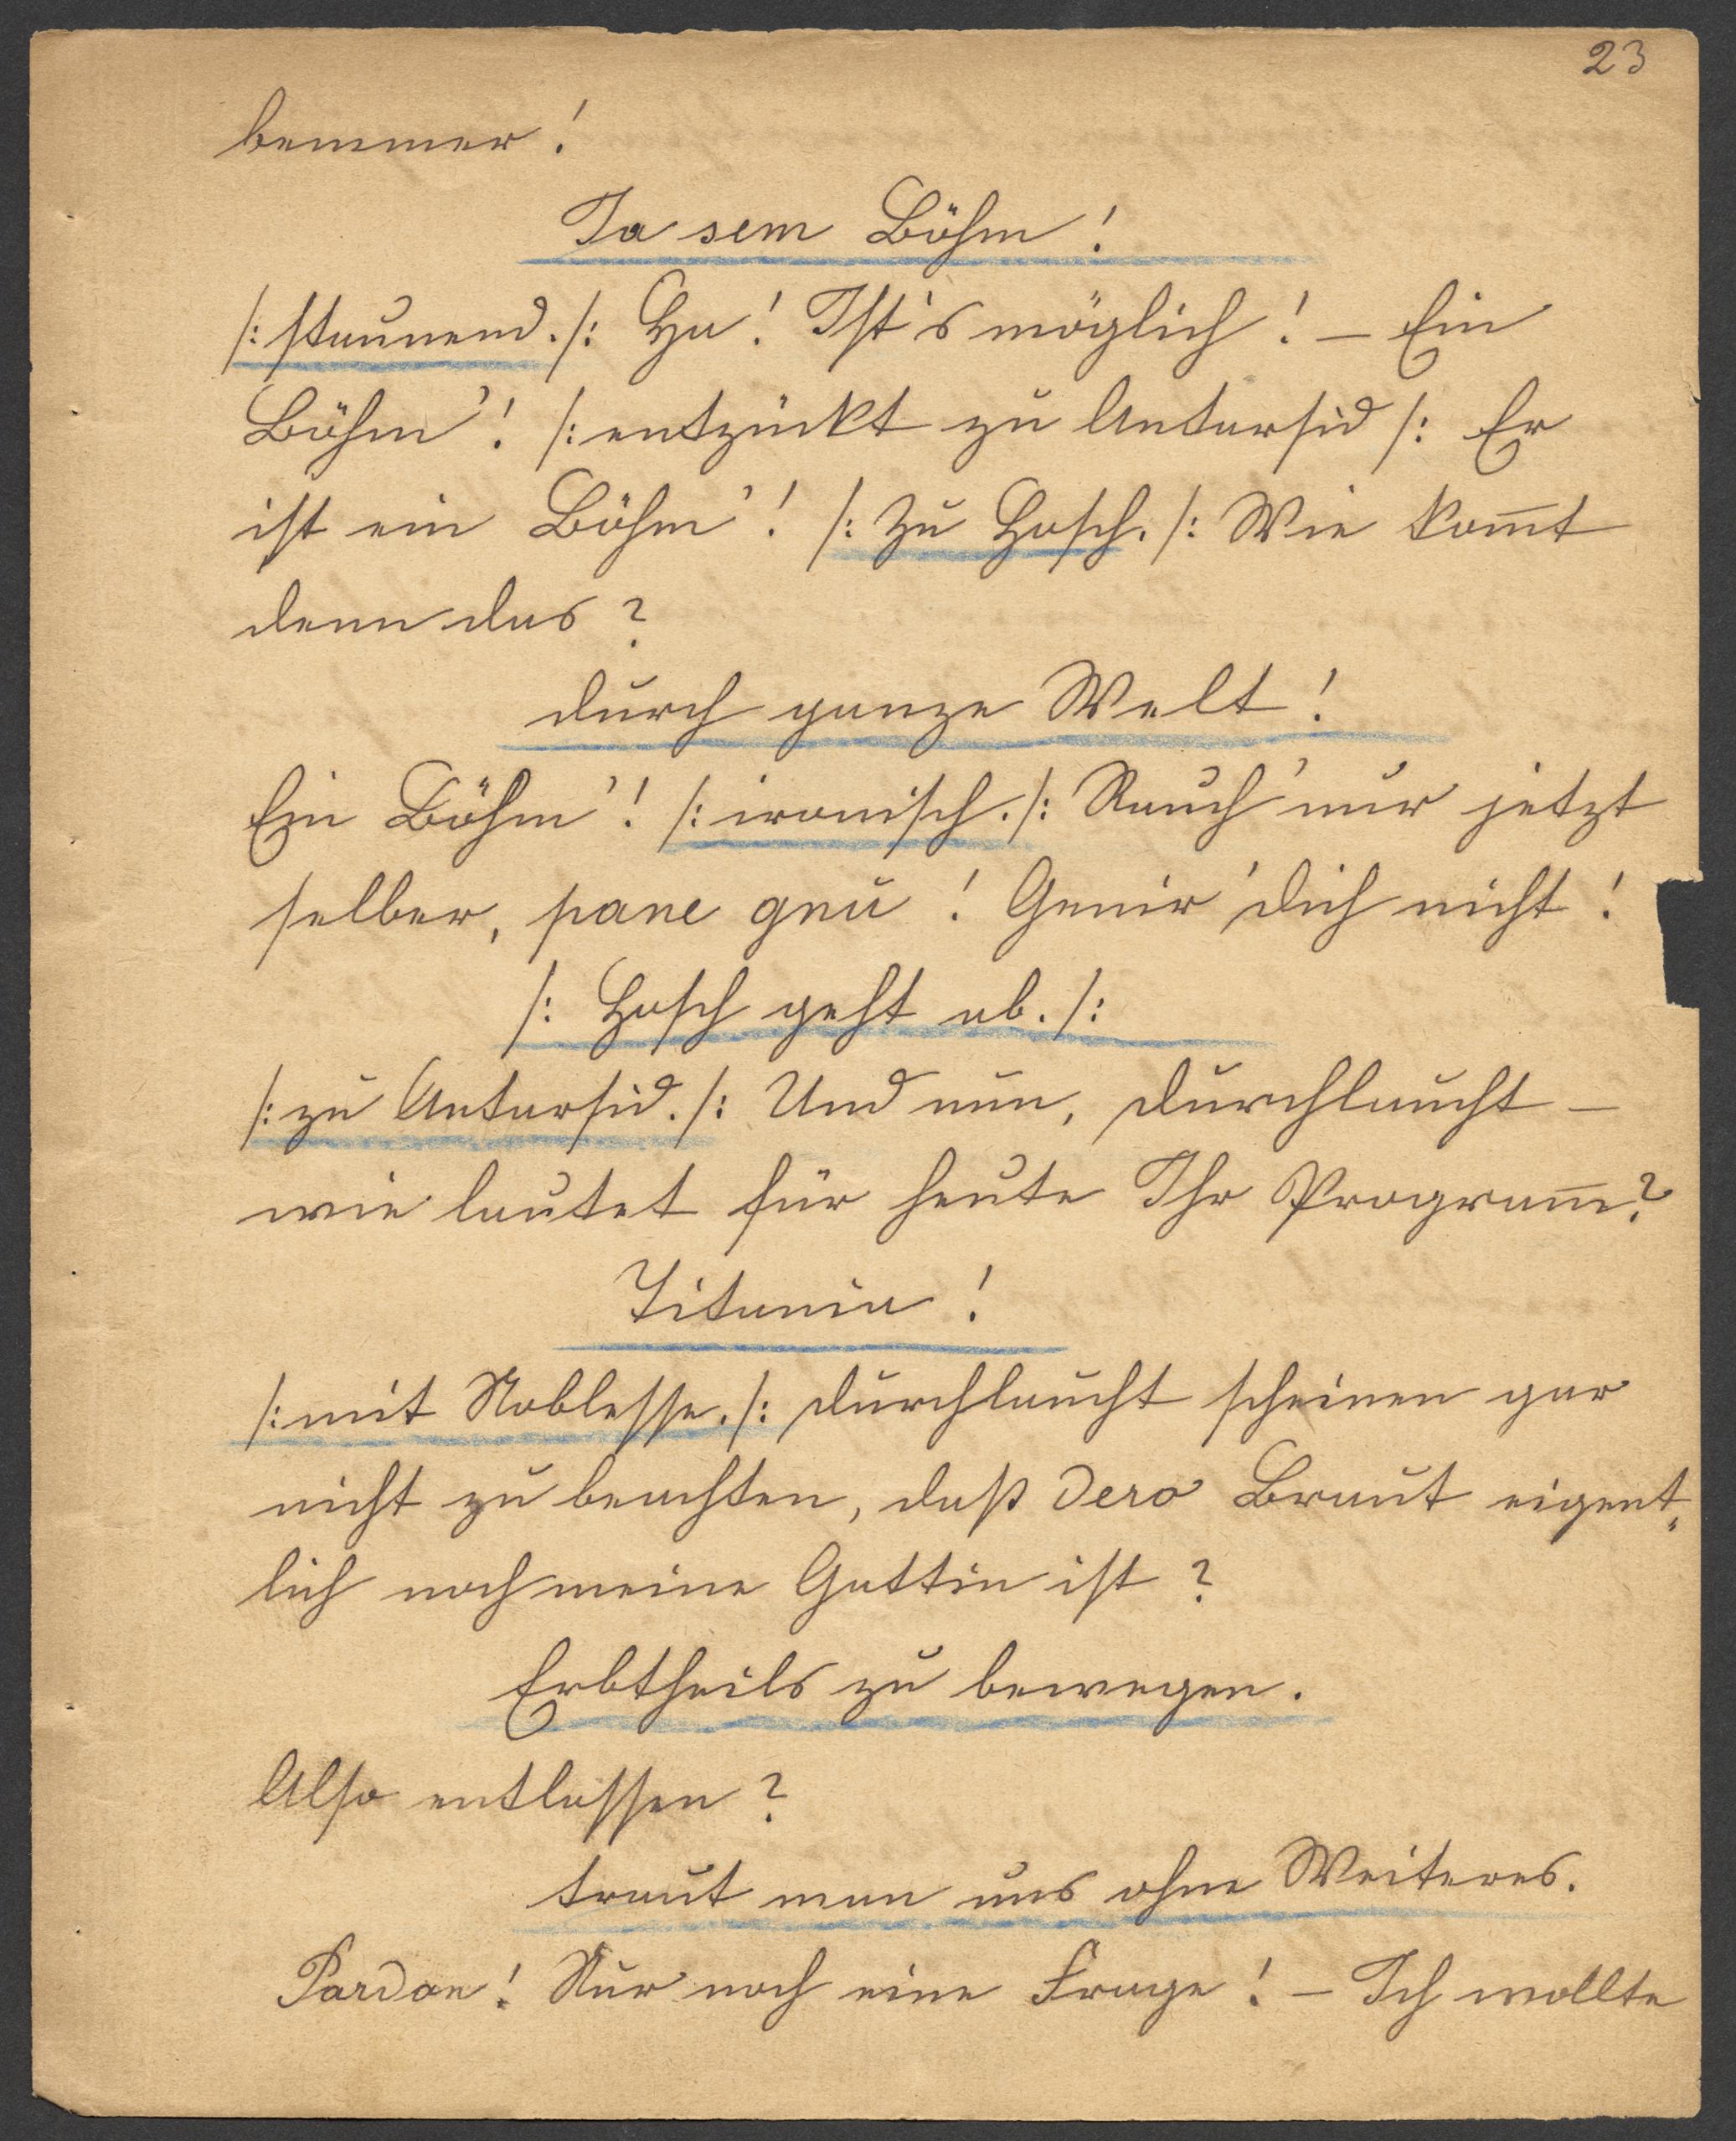 23
bemmer!
Ja sem Böhm!
/: staunend. /: Ha! Ist's möglich! – Ein
Böhm'! /: entzückt zu Antarsid /: Er
ist ein Böhm'! /: Zu Hosch. /: Wie kom̅t
denn das?
durch ganze Welt!
Ein Böhm'! /: ironisch. /: Rauch' nur jetzt
selber, pane gnu! Genir' dich nicht!
/: Hosch geht ab. /:
/: zu Antarsid. /: Und nun, Durchlaucht –
wie lautet für heute Ihr Program̅?
Titania!
/: mit Noblesse. /: Durchlaucht scheinen gar
nicht zu beachten, daß Dero Braut eigent„
lich noch meine Gattin ist?
Erbtheils zu bewegen.
Also entlassen?
traut man uns ohne Weiteres.
Pardon! Nur noch eine Frage! – Ich wollte